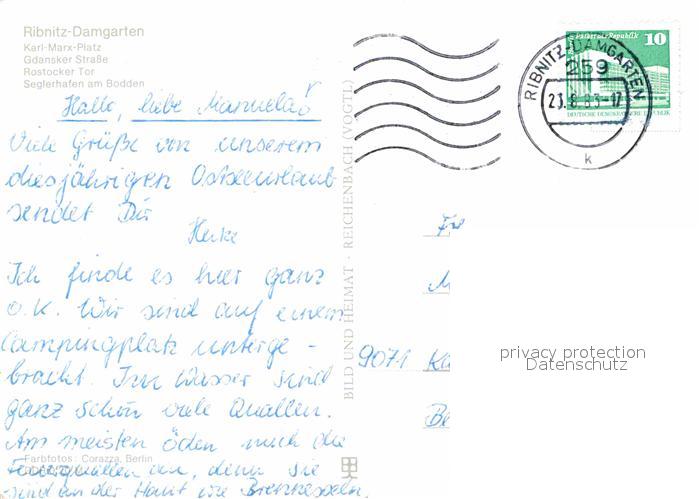 Ribnitz-Damgarten
Karl-Marx-Platz
Gdansker Straße
Rostocker Tor
Seglerhafen am Bodden
Hallo, liebe Manuela!
Viele Grüße von unserem
diesjährigen Ostseeurlaub
sendet Dir
Heike
Ich finde es hier ganz
o.K. Wir sind auf einem
Campingplatz unterge-
bracht. Im Wasser sind
ganz schön viele Quallen.
Am meisten öden mich die
Feuerquallen an, denn sie
sind an der Haut wie Brennesseln.
Farbfotos: Corazza, Berlin
BILD UND HEIMAT · REICHENBACH (VOGTL)
10
DEUTSCHE DEMOKRATISCHE REPUBLIK
RIBNITZ-DAMGARTEN
259
23.8.83-17
k
9071 Ka
privacy protection
Datenschutz